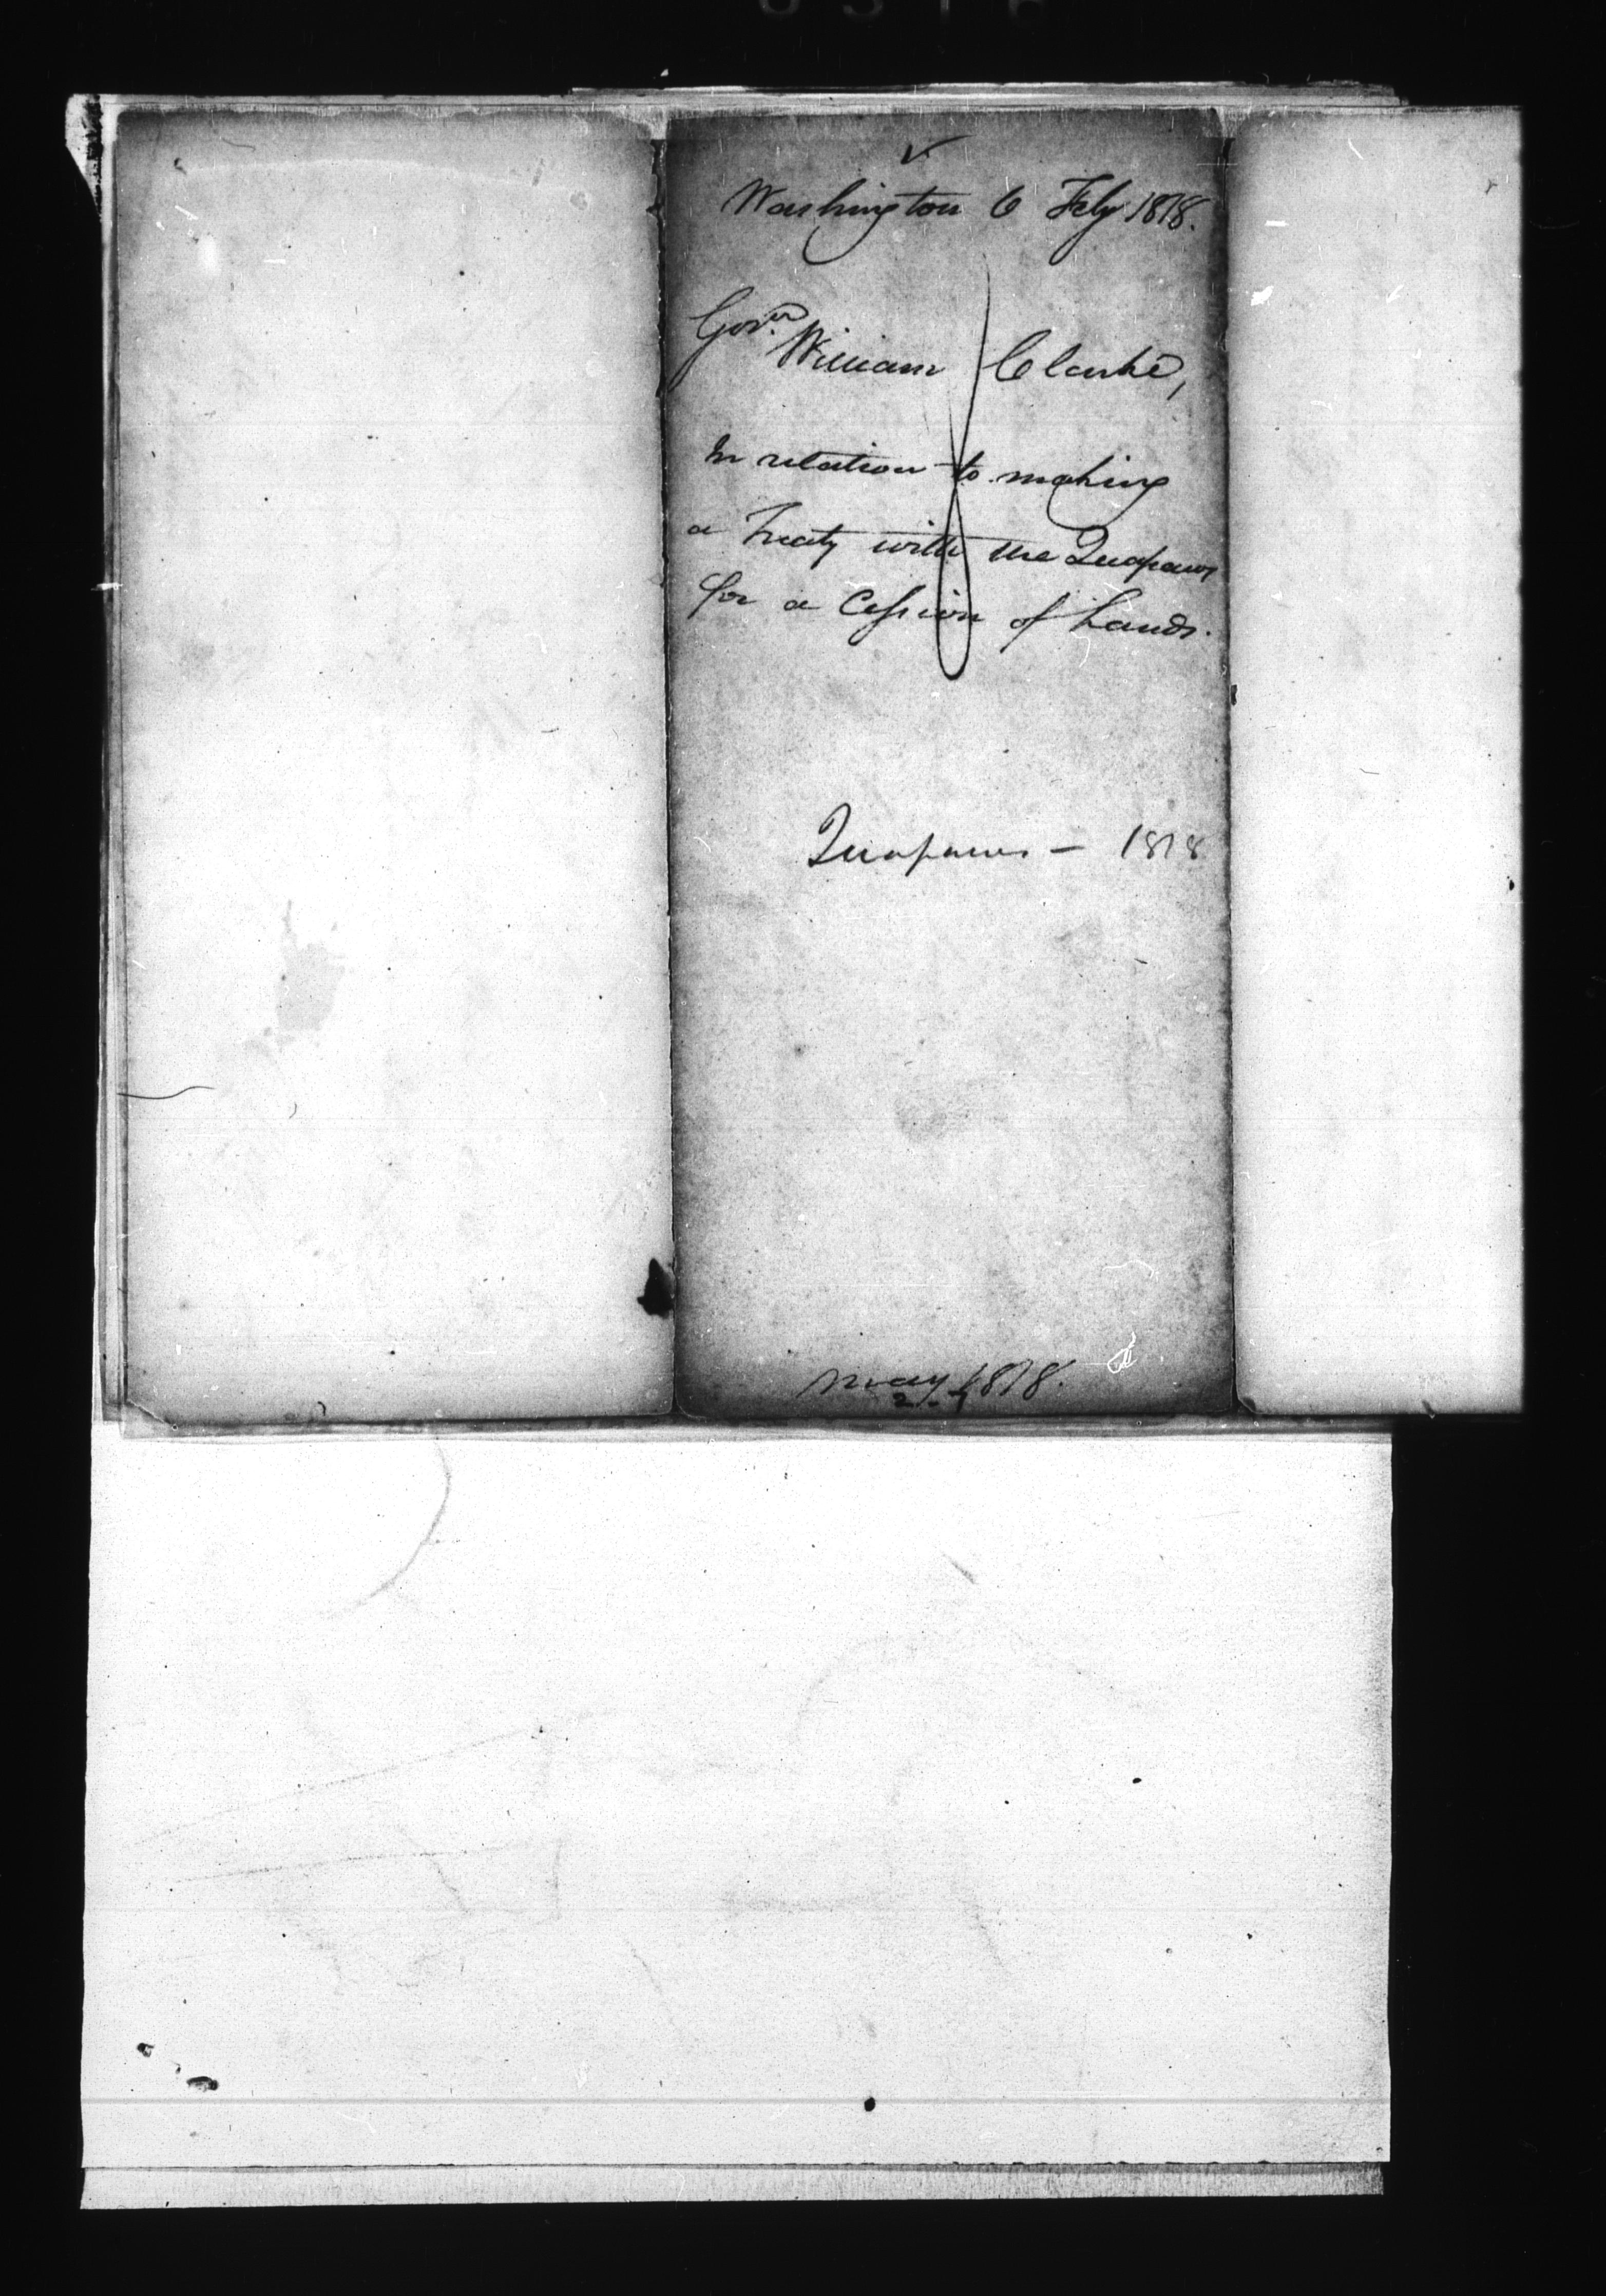 Washington 6 Feby 1818.
Govr.
William Clarke,
In relation to making
a Treaty with the Quapaws
for a Cession of Lands.
Quapaws — 1818
May 1818.